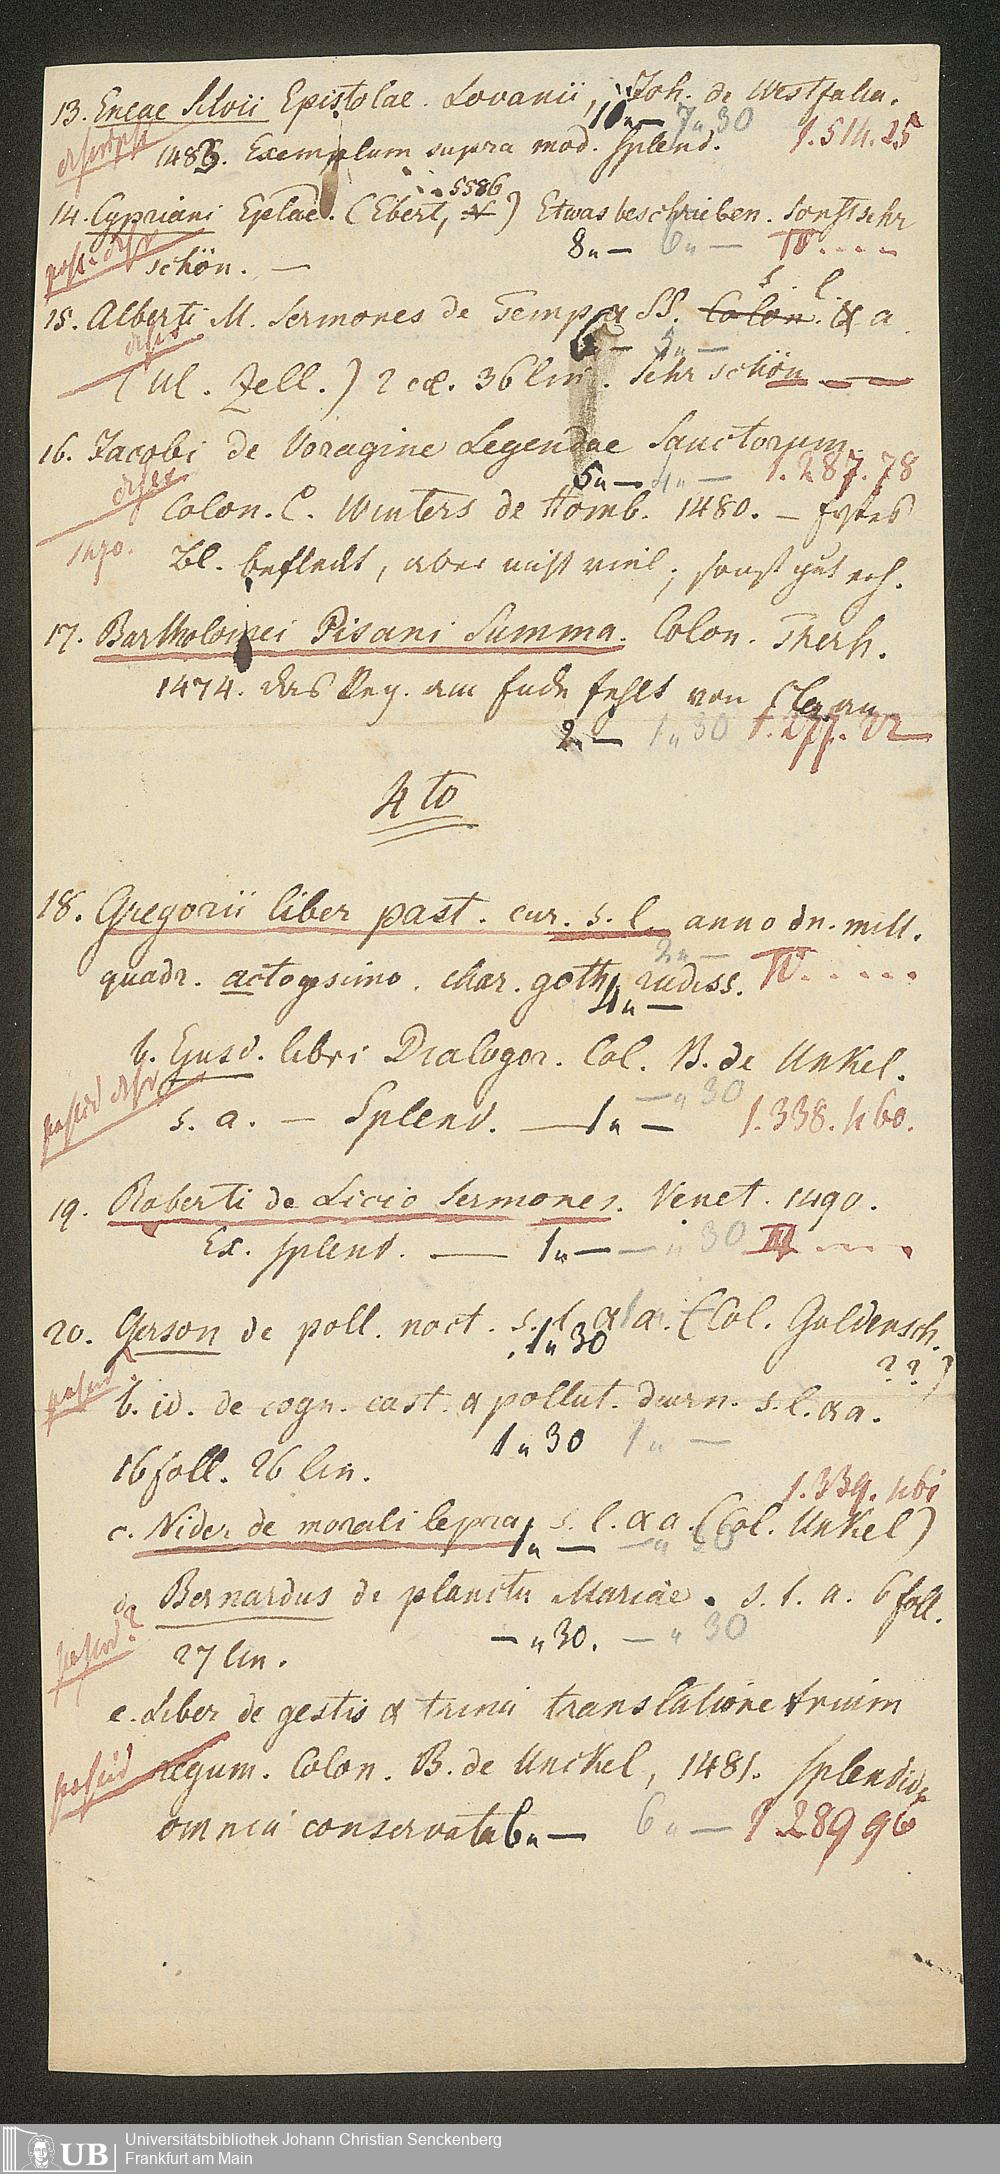 13. Eneae Silvii Epistolae. Lovanii, Joh. de Westfalia.
10 „ — 7 „ 30
1483. Exemplum supra mod. splend. 1.514.25
14. Cypriani Eplae. (Ebert, 5586) Etwas beschrieben. Sonst sehr
8 „ — 6 „ — IV. . . .
schön. —
15. Alberti M. Sermones de Temp. & SS. Colon. s. l. & a
6 „ — 5 „ —
(Ul. Zell.) 2 col. 36 lin. Sehr schön — —
16. Jacobi de Voragine Legendae Sanctorum.
5 „ — 4 „ — 1.287.78
Colon. C. Winters de Homb. 1480. —
Bl. befleckt, aber nicht viel; sonst gut erh.
17. Bartholomei Pisani Summa. Colon. Therh.
1474. das Reg. am Ende fehlt von an
2 „ — 1 „ 30 1.277.22
4to
18. Gregorii liber past. cur. s. l. anno dn. mill.
2 „ —
quadr. actogesimo. char. goth. rudiss. IV. . . . .
4 „ —
b. Ejusd. libri Dialogor. Col. B. de Unkel.
— „ 30
posid
s. a. — Splend. — 1 „ — 1.338.460.
19. Roberti de Licio Sermones. Venet. 1490.
Ex. splend. — 1 „ — — „ 30 III . . . .
20. Gerson de poll. noct. s. l. & a. (Col. Guldensch.
1 „ 30 ? ? )
b. id. de cogn. cast. & pollut. diurn. s. l. & a.
1 „ 30 1 „ —
16 foll. 26 lin.
1.339.461
c. Nider de morali lepra, s. l. & a. (Col. Unkel)
1 „ — — „ 30
d. Bernardus de planctu Mariae. s. l. a. 6 foll.
— „ 30. — „ 30
27 lin.
e. Liber de gestis & trina translatione trium
posid regum. Colon. B. de Unckel, 1481. splendide
omnia conservata 6 „ — 6 „ — 1 289 96
UB Universitätsbibliothek Johann Christian Senckenberg
Frankfurt am Main